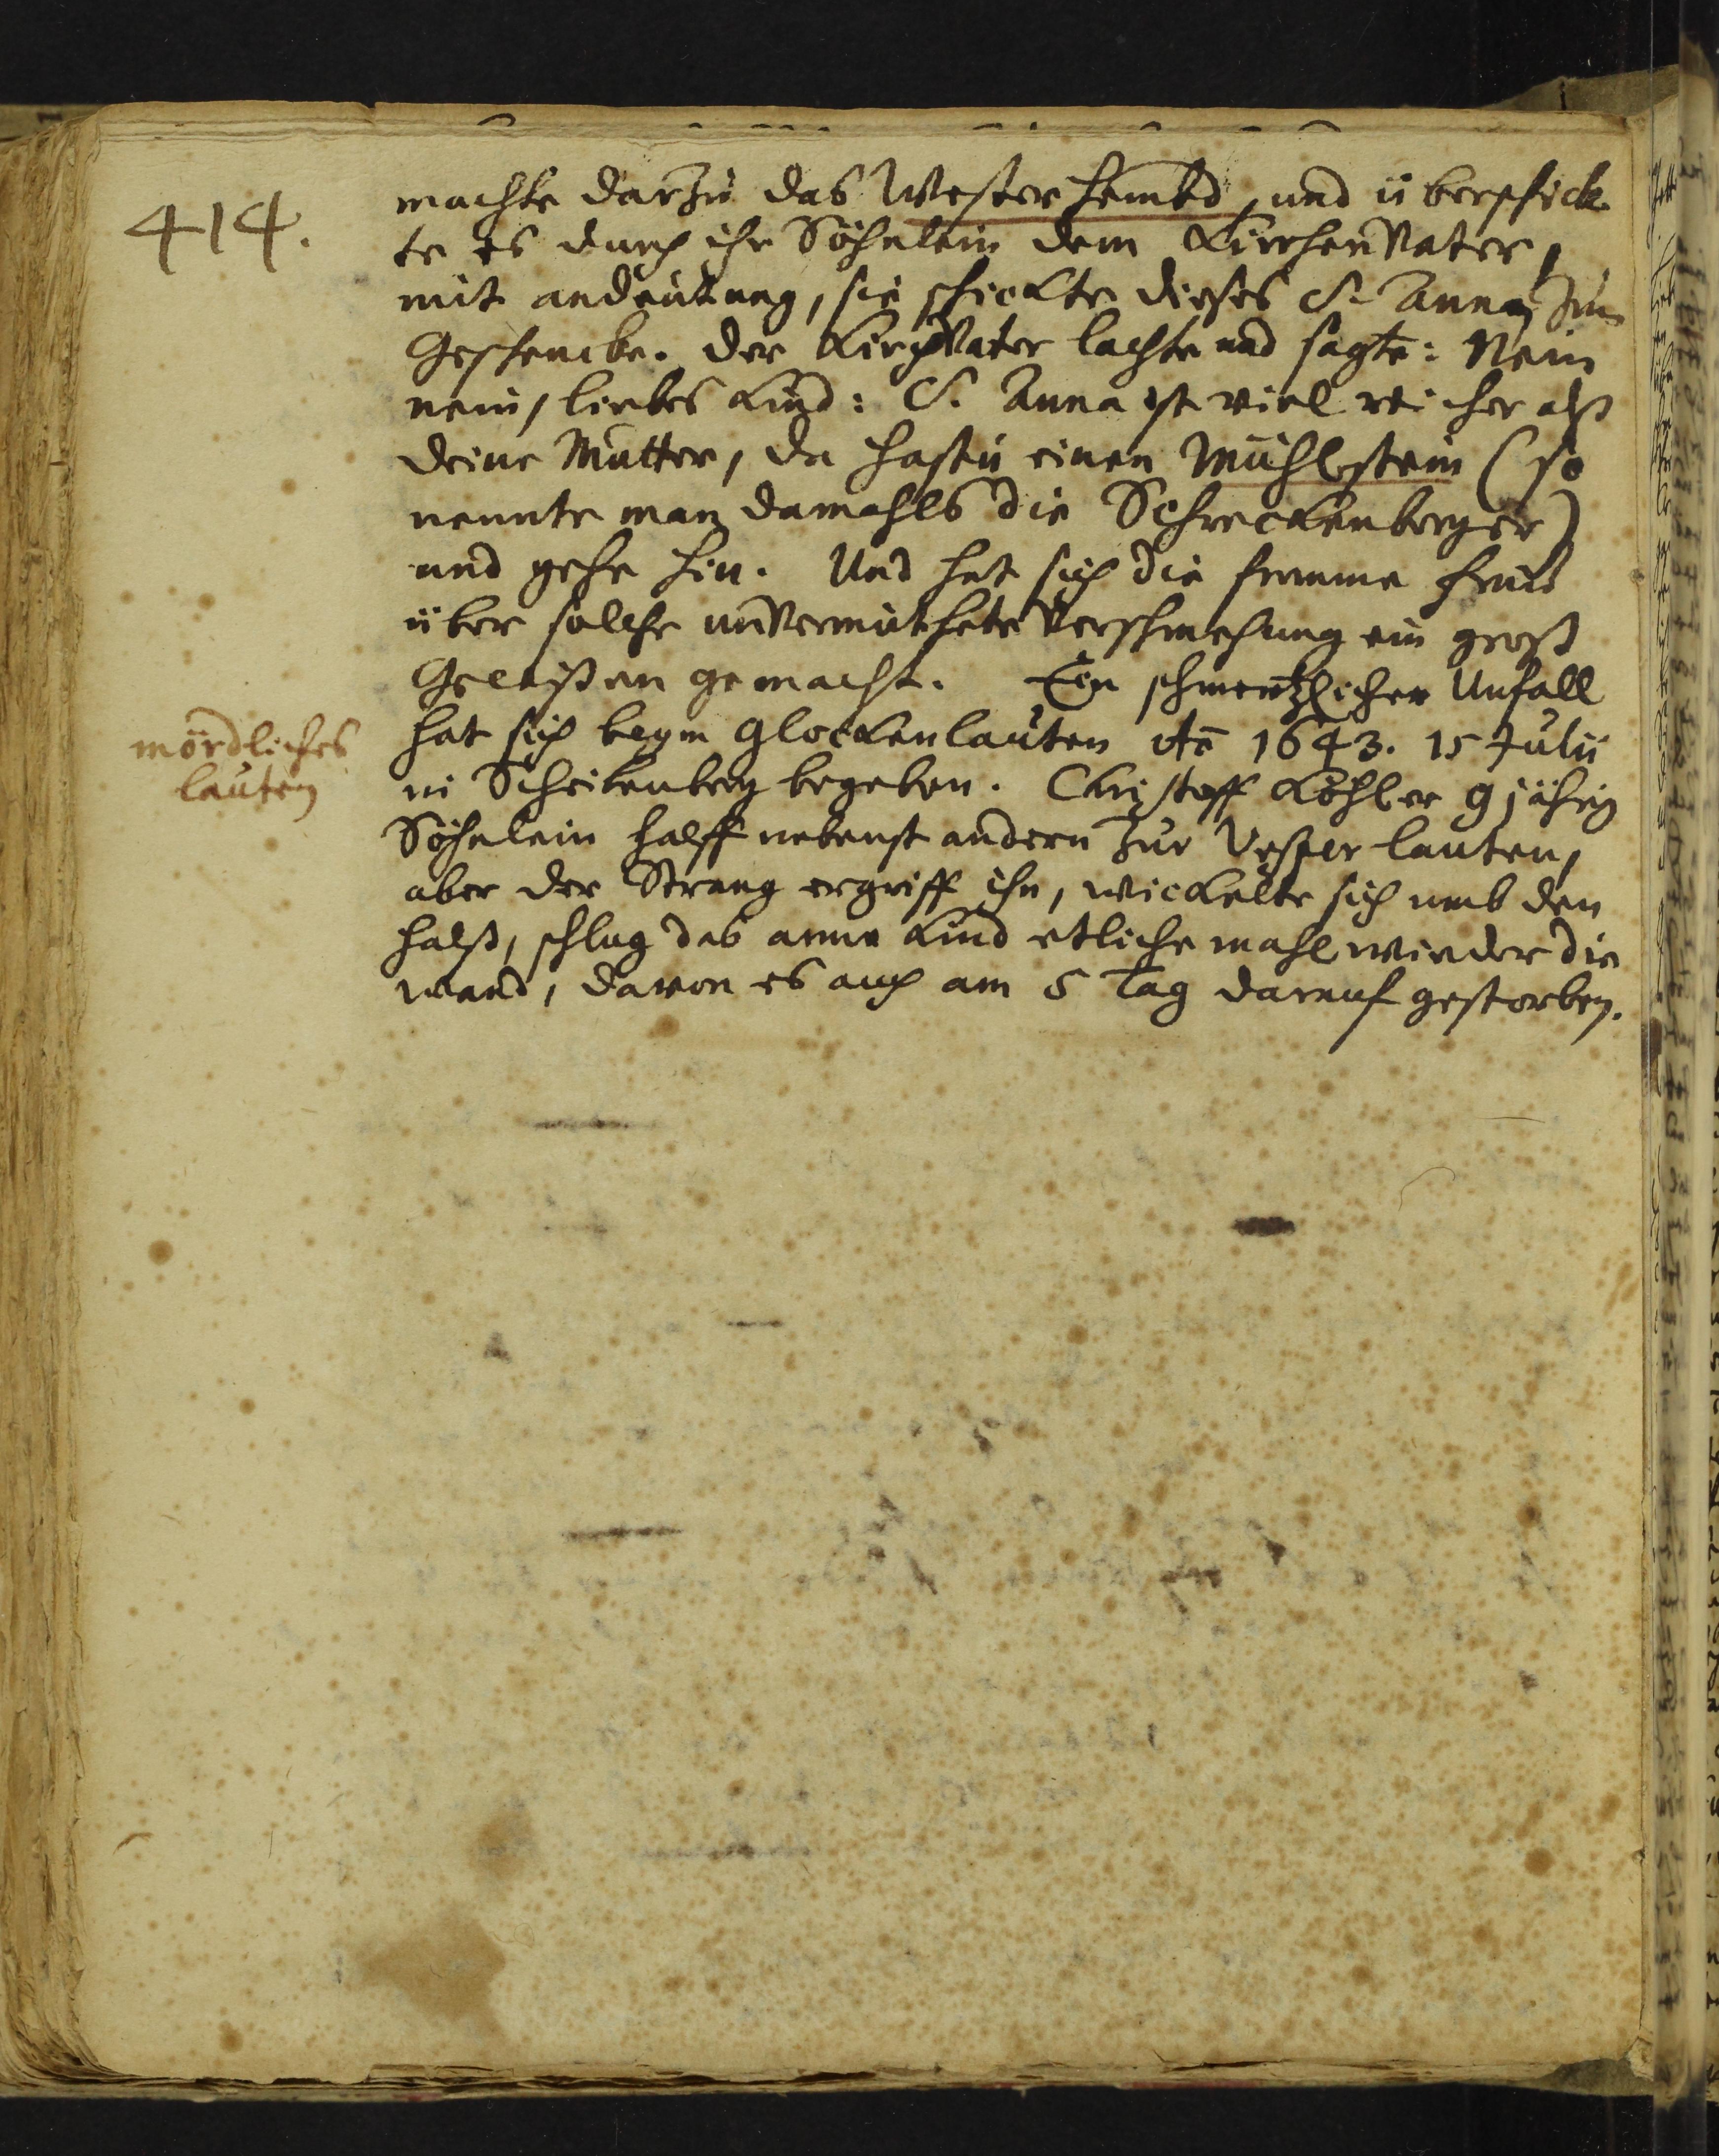 414.
machte darzu das Westerhembd, und überschick
te es durch ihr Söhnlein dem KirchenVater,
mit andeutung, sie schickte dieses S. Anna zum
Geschencke. Der KirchVater lachte und sagte: Nein
nein, liebes Kind: S. Anna ist viel reicher alß
deine Mutter, da hastu einen Mühlstein (so
nennte man damahls die Schreckenberger)
und gehe hin. Und hat sich die fromme Frau
über solche unVermuthete Verschmehung ein groß
Gewißen gemacht. Ein schmertzlicher Unfall
hat sich beym Glockenlauten Ao 1643. 15 Julii
mördliches
lauten
in Scheibenberg begeben. Christoff Köhler 9jährig
Söhnlein halff nebenst andern zur Vesper lauten,
aber der Strang ergriff ihn, wickelte sich umb den
halß, schlug das arme Kind etliche mahl wieder die
wand, davon es auch am 5 Tag darauf gestorben.